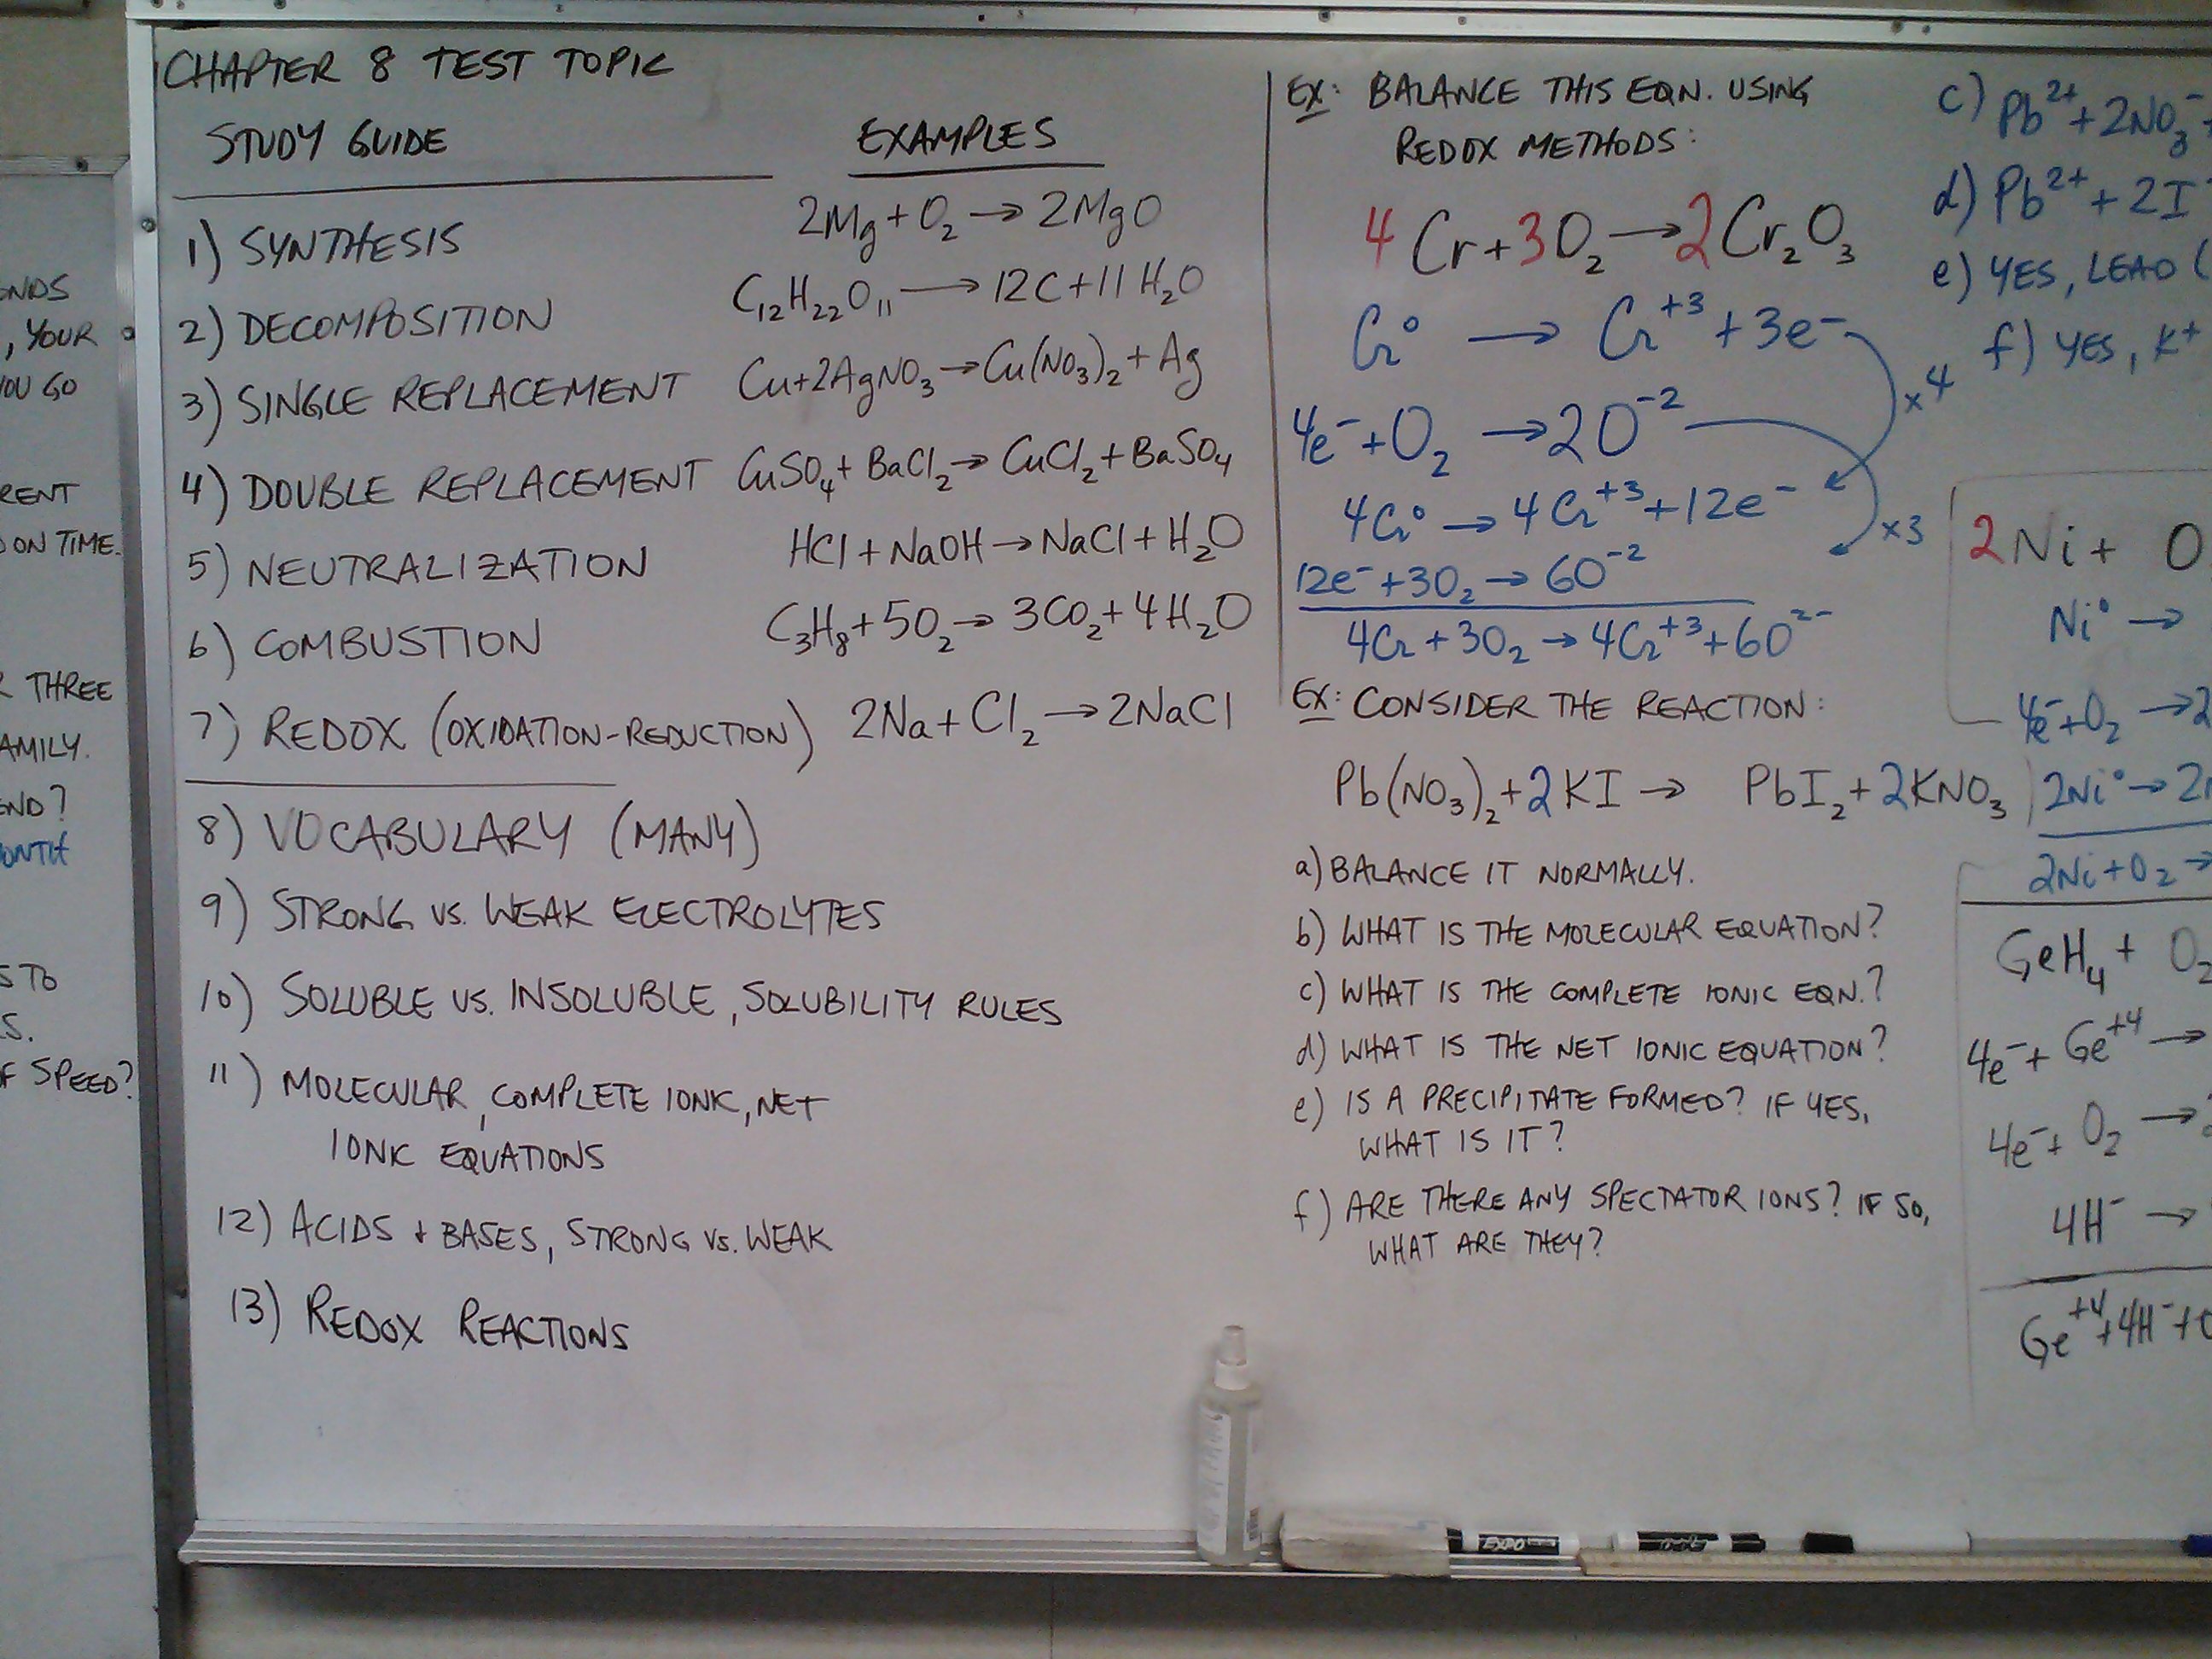 CHAPTER 8 TEST TOPIC
STUDY GUIDE
EXAMPLES
1) SYNTHESIS 2Mg + O₂ → 2MgO
2) DECOMPOSITION C₁₂H₂₂O₁₁ → 12C + 11H₂O
3) SINGLE REPLACEMENT Cu + 2AgNO₃ → Cu(NO₃)₂ + Ag
4) DOUBLE REPLACEMENT CuSO₄ + BaCl₂ → CuCl₂ + BaSO₄
5) NEUTRALIZATION HCl + NaOH → NaCl + H₂O
6) COMBUSTION C₃H₈ + 5O₂ → 3CO₂ + 4H₂O
7) REDOX (OXIDATION-REDUCTION) 2Na + Cl₂ → 2NaCl
8) VOCABULARY (MANY)
9) STRONG VS. WEAK ELECTROLYTES
10) SOLUBLE VS. INSOLUBLE, SOLUBILITY RULES
11) MOLECULAR, COMPLETE IONIC, NET
IONIC EQUATIONS
12) ACIDS + BASES, STRONG VS. WEAK
13) REDOX REACTIONS
EX: BALANCE THIS EQN. USING
REDOX METHODS:
4Cr + 3O₂ → 2Cr₂O₃
Cr⁰ → Cr⁺³ + 3e⁻
x4
4e⁻ + O₂ → 2O⁻²
4Cr⁰ → 4Cr⁺³ + 12e⁻
x3
12e⁻ + 3O₂ → 6O⁻²
4Cr + 3O₂ → 4Cr⁺³ + 6O²⁻
EX: CONSIDER THE REACTION:
Pb(NO₃)₂ + 2KI → PbI₂ + 2KNO₃
a) BALANCE IT NORMALLY.
b) WHAT IS THE MOLECULAR EQUATION?
c) WHAT IS THE COMPLETE IONIC EQN.?
d) WHAT IS THE NET IONIC EQUATION?
e) IS A PRECIPITATE FORMED? IF YES,
WHAT IS IT?
f) ARE THERE ANY SPECTATOR IONS? IF SO,
WHAT ARE THEY?
c) Pb²⁺ + 2NO₃⁻ +
d) Pb²⁺ + 2I⁻
e) YES, LEAD (
f) YES, K⁺
2Ni + O
Ni⁰ →
4e⁻ + O₂ → 2
2Ni⁰ → 2
2Ni + O₂ →
GeH₄ + O₂
4e⁻ + Ge⁺⁴ →
4e⁻ + O₂ →
4H⁻ →
Ge⁺⁴ + 4H⁻ +
, YOUR
YOU GO
ON TIME.
THREE
TO
SPEED?
EXPO